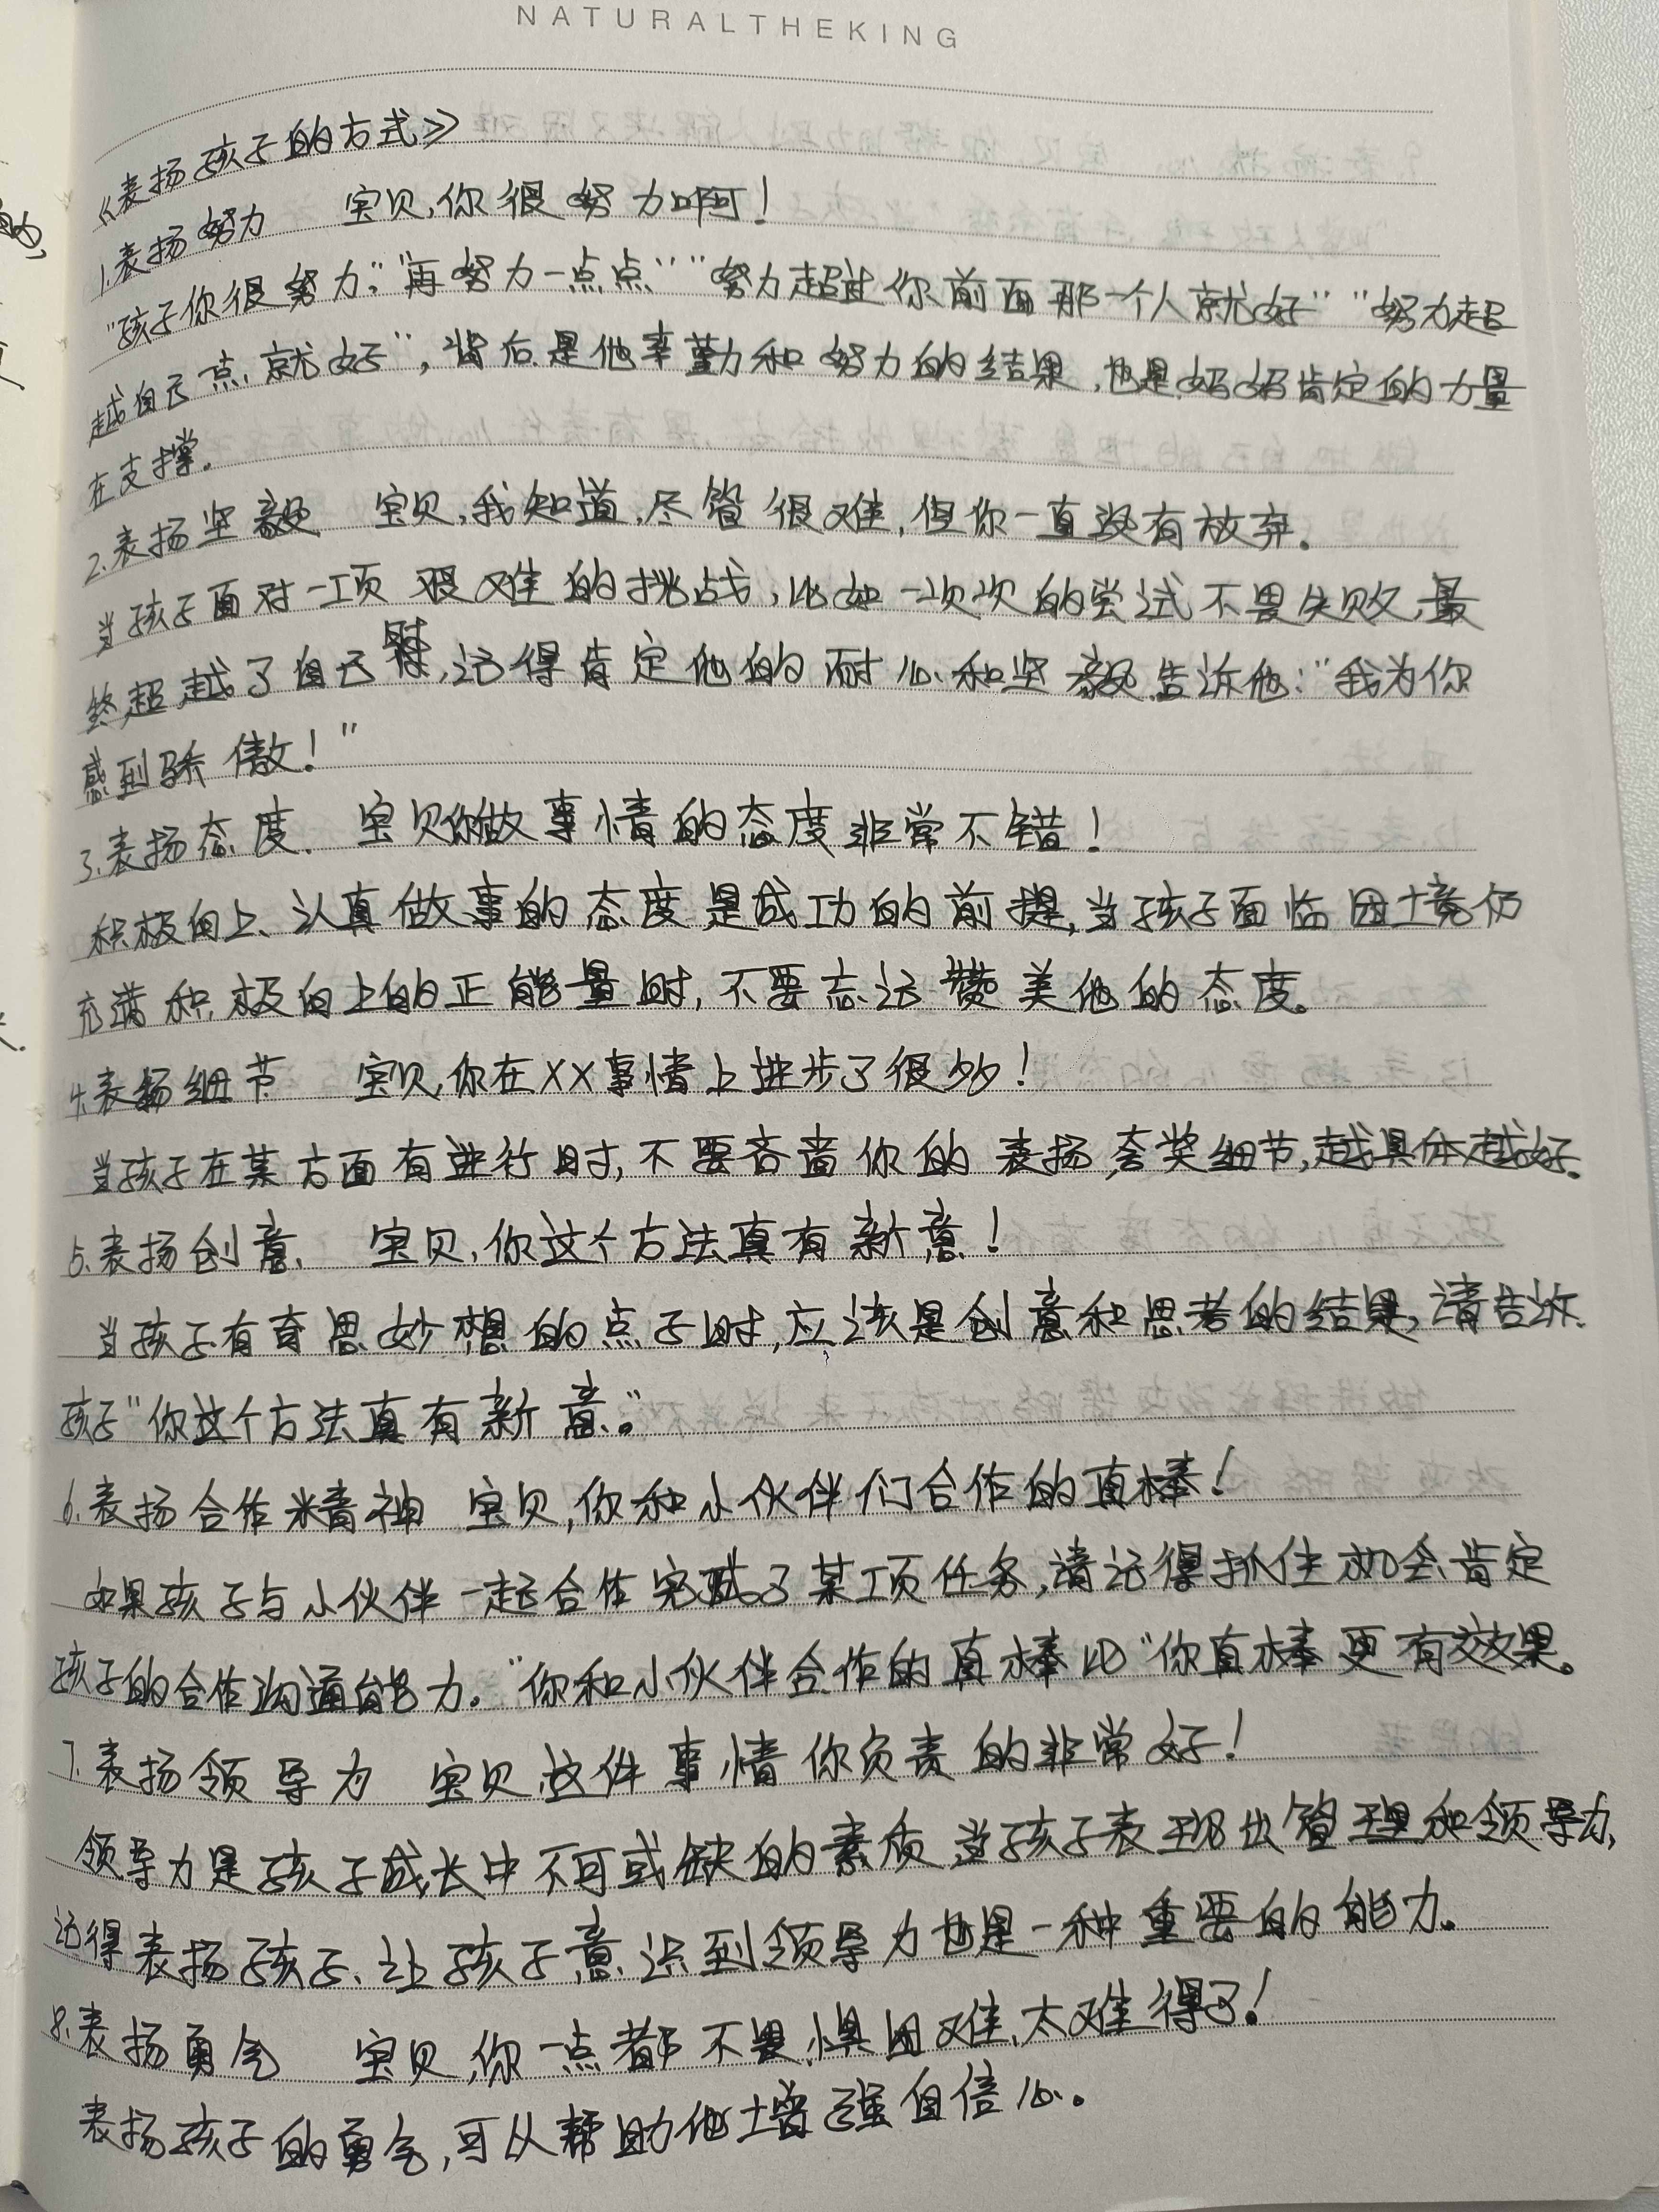 NATURALTHEKING
《表扬孩子的方式》
1.表扬努力 宝贝,你很努力啊!
"孩子你很努力""再努力一点点""努力超过你前面那一个人就好""努力超
越自己点就好",背后是他辛勤和努力的结果,也是妈妈肯定的力量
在支撑.
2.表扬坚毅 宝贝,我知道,尽管很难,但你一直没有放弃.
当孩子面对一项艰难的挑战,比如一次次的尝试不畏失败,最
终超越了自己时,记得肯定他的耐心和坚毅告诉他:"我为你
感到骄傲!"
3.表扬态度. 宝贝你做事情的态度非常不错!
积极向上、认真做事的态度是成功的前提,当孩子面临困境仍
充满积极向上的正能量时,不要忘记赞美他的态度。
4.表扬细节 宝贝,你在XX事情上进步了很多!
当孩子在某方面有进行时,不要吝啬你的表扬,夸奖细节,越具体越好.
5.表扬创意. 宝贝,你这个方法真有新意!
当孩子有奇思妙想的点子时,应该是创意和思考的结果,请告诉
孩子"你这个方法真有新意。"
6.表扬合作精神 宝贝,你和小伙伴们合作的真棒!
如果孩子与小伙伴一起合作完成了某项任务,请记得抓住机会肯定
孩子的合作沟通能力."你和小伙伴合作的真棒比"你真棒更有效果。
7.表扬领导力 宝贝,这件事情你负责的非常好!
领导力是孩子成长中不可或缺的素质当孩子表现出管理和领导力,
记得表扬孩子、让孩子意识到领导力也是一种重要的能力。
8.表扬勇气 宝贝,你一点都不畏惧困难,太难得了!
表扬孩子的勇气,可以帮助他增强自信心。